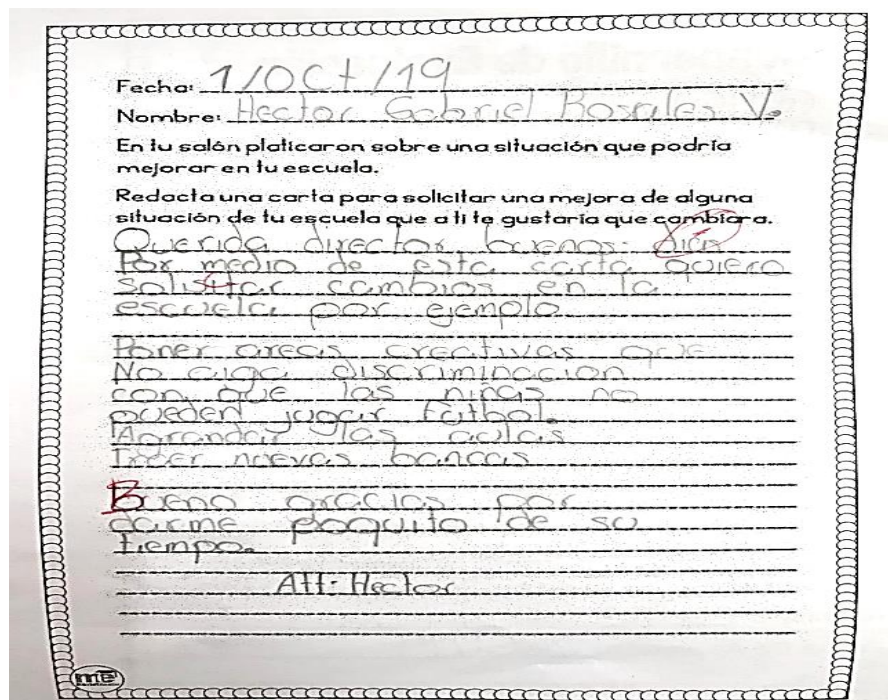 Fecha: 1/Oct/19
Nombre: Hector Gabriel Rosales V.
En tu salón platicaron sobre una situación que podría
mejorar en tu escuela.
Redacta una carta para solicitar una mejora de alguna
situación de tu escuela que a ti te gustaría que cambiara.
Querida director buenos dias
Por medio de esta carta quiero
solisitar cambios en la
escuela por ejemplo
Poner areas creativas que
No aiga discriminacion
con que las niñas no
pueden jugar futbol.
Agrandar las aulas
Traer nuevas bancas
Bueno gracias por
darme poquito de su
tiempo.
Att: Hector